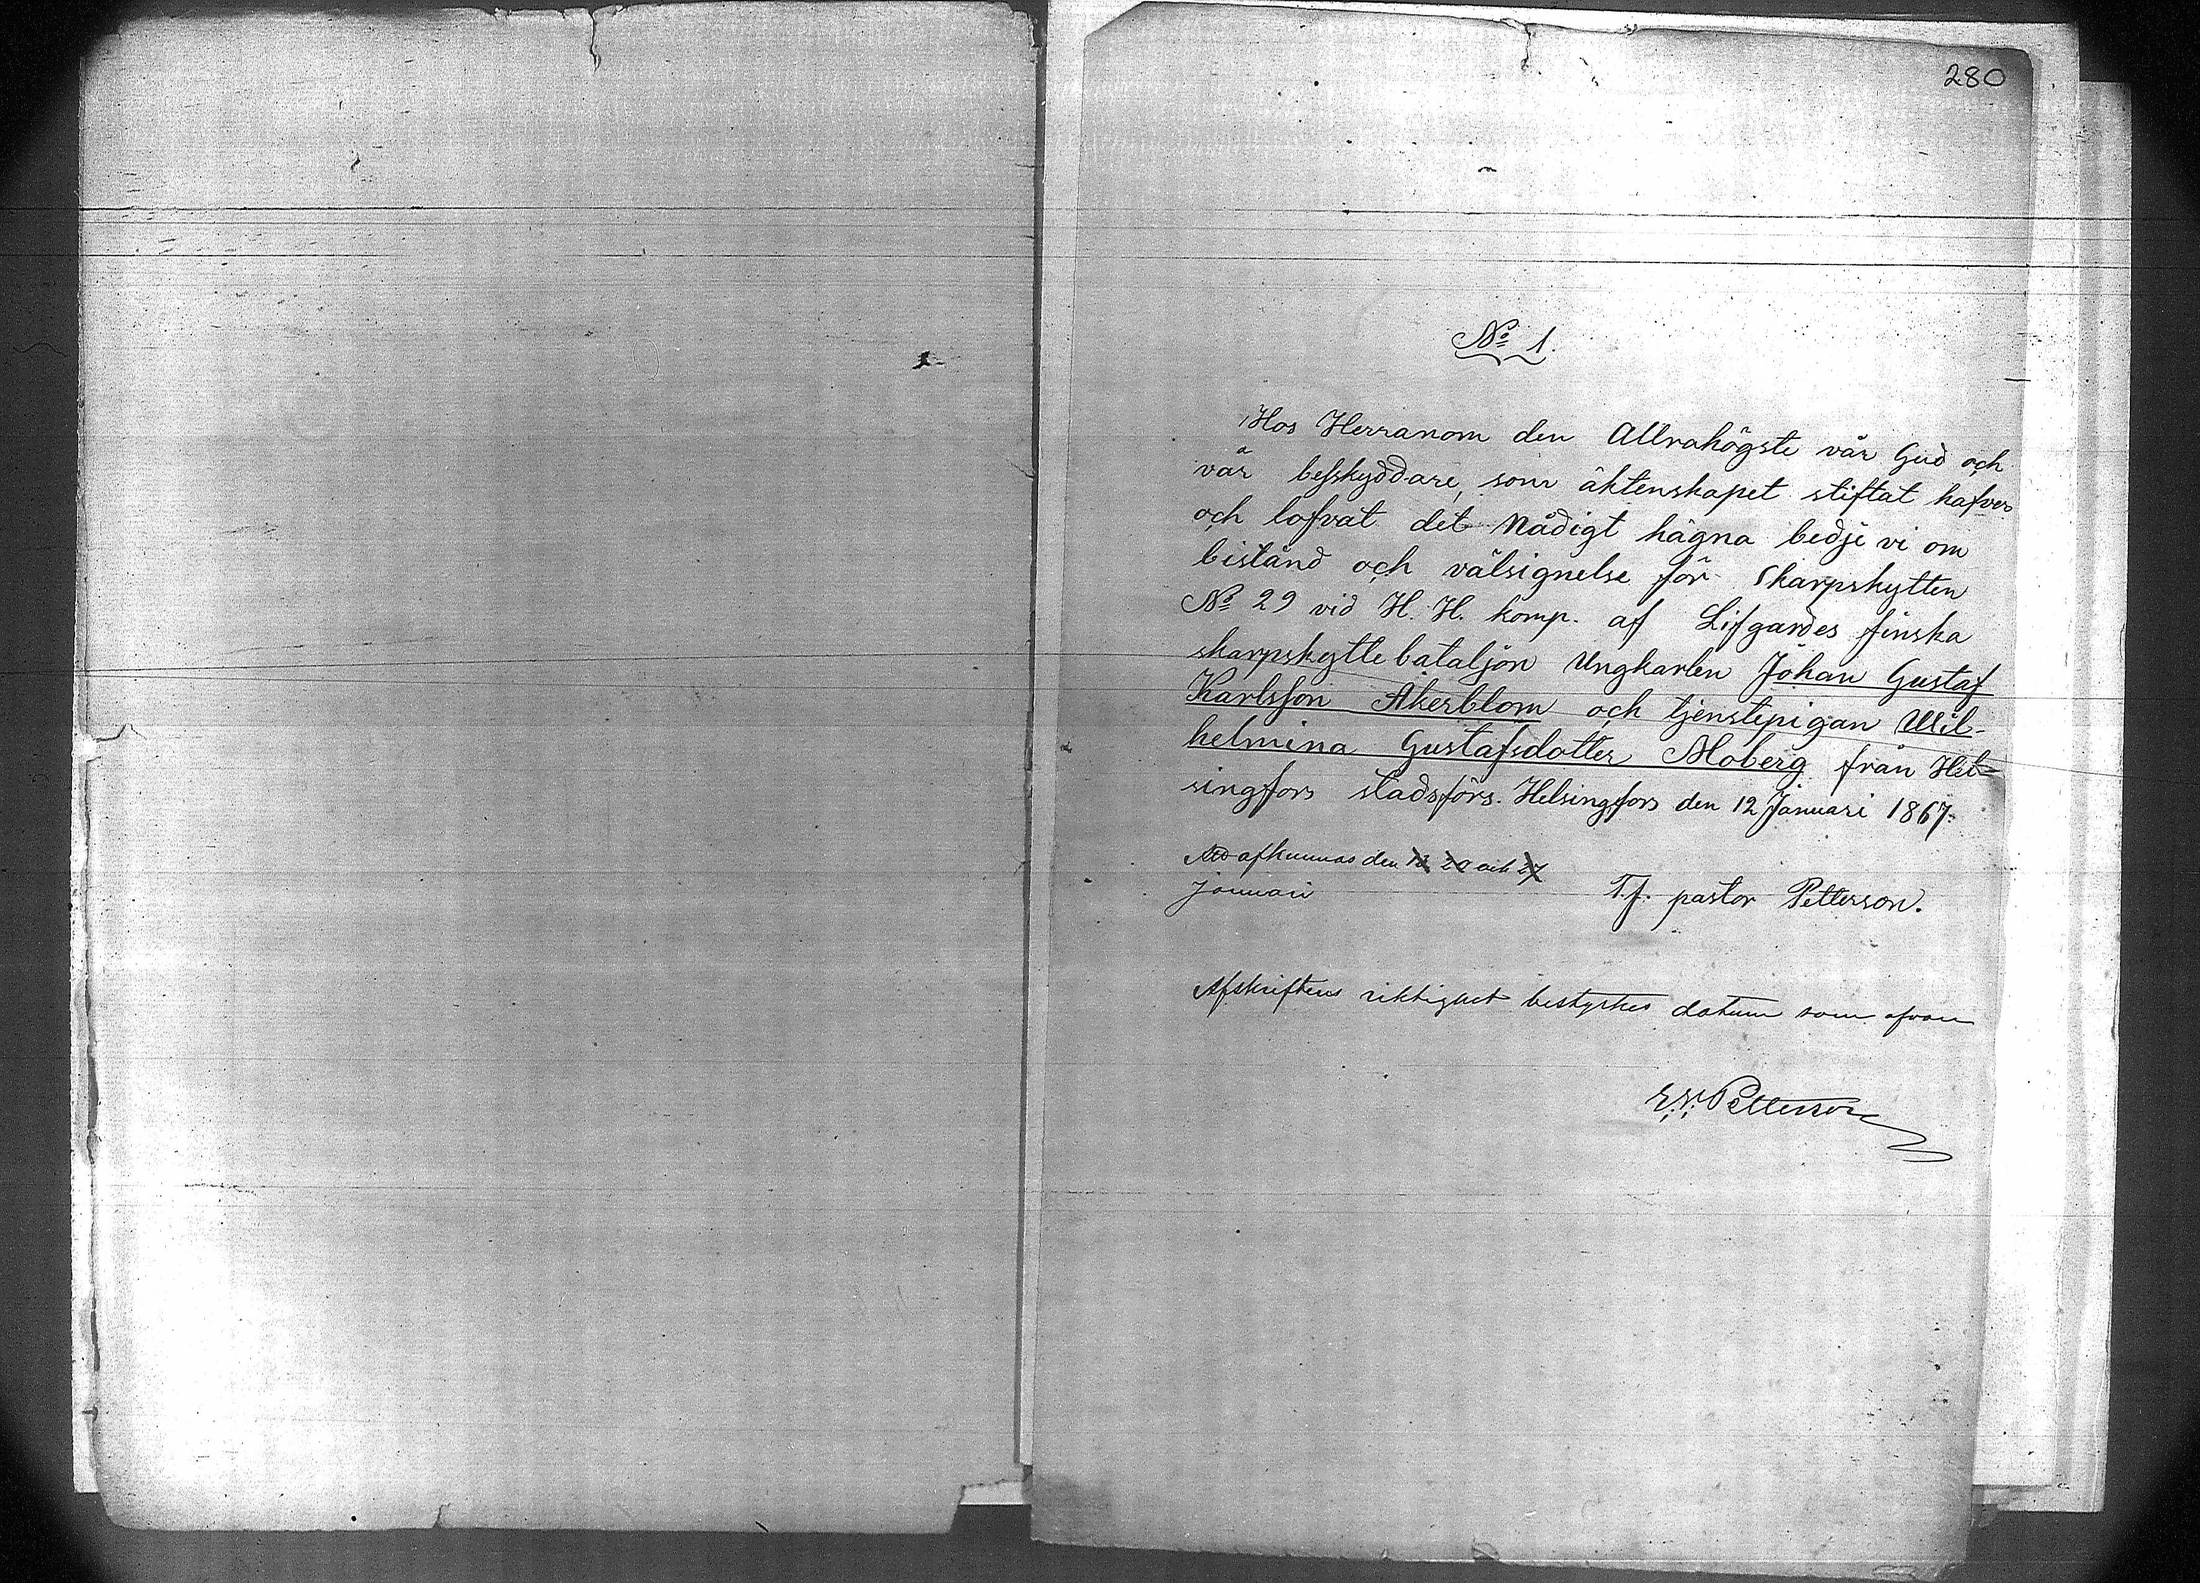 280
No 1.
Hos Herranom den Allrahögste vår Gud och
vår besskyddare, som äktenskapet stiftat hafver
och lofvat det Nådigt hägna bedje vi om
bistånd och välsignelse för Skarpskytten
No 29 vid H. H. komp. af Lifgardes finska
skarpskyttebataljon Ungkarlen Johan Gustaf
Karlsson Åkerblom och tjenstepigan Wil-
helmina Gustafsdotter Moberg från Hel-
singfors stadsförs. Helsingfors den 12 Januari 1867.
afkunnas den 13 20 och 27
januari
T.f. pastor Petterson.
Afskriftens riktighet bestyrkes datum som ofvan
Petterson